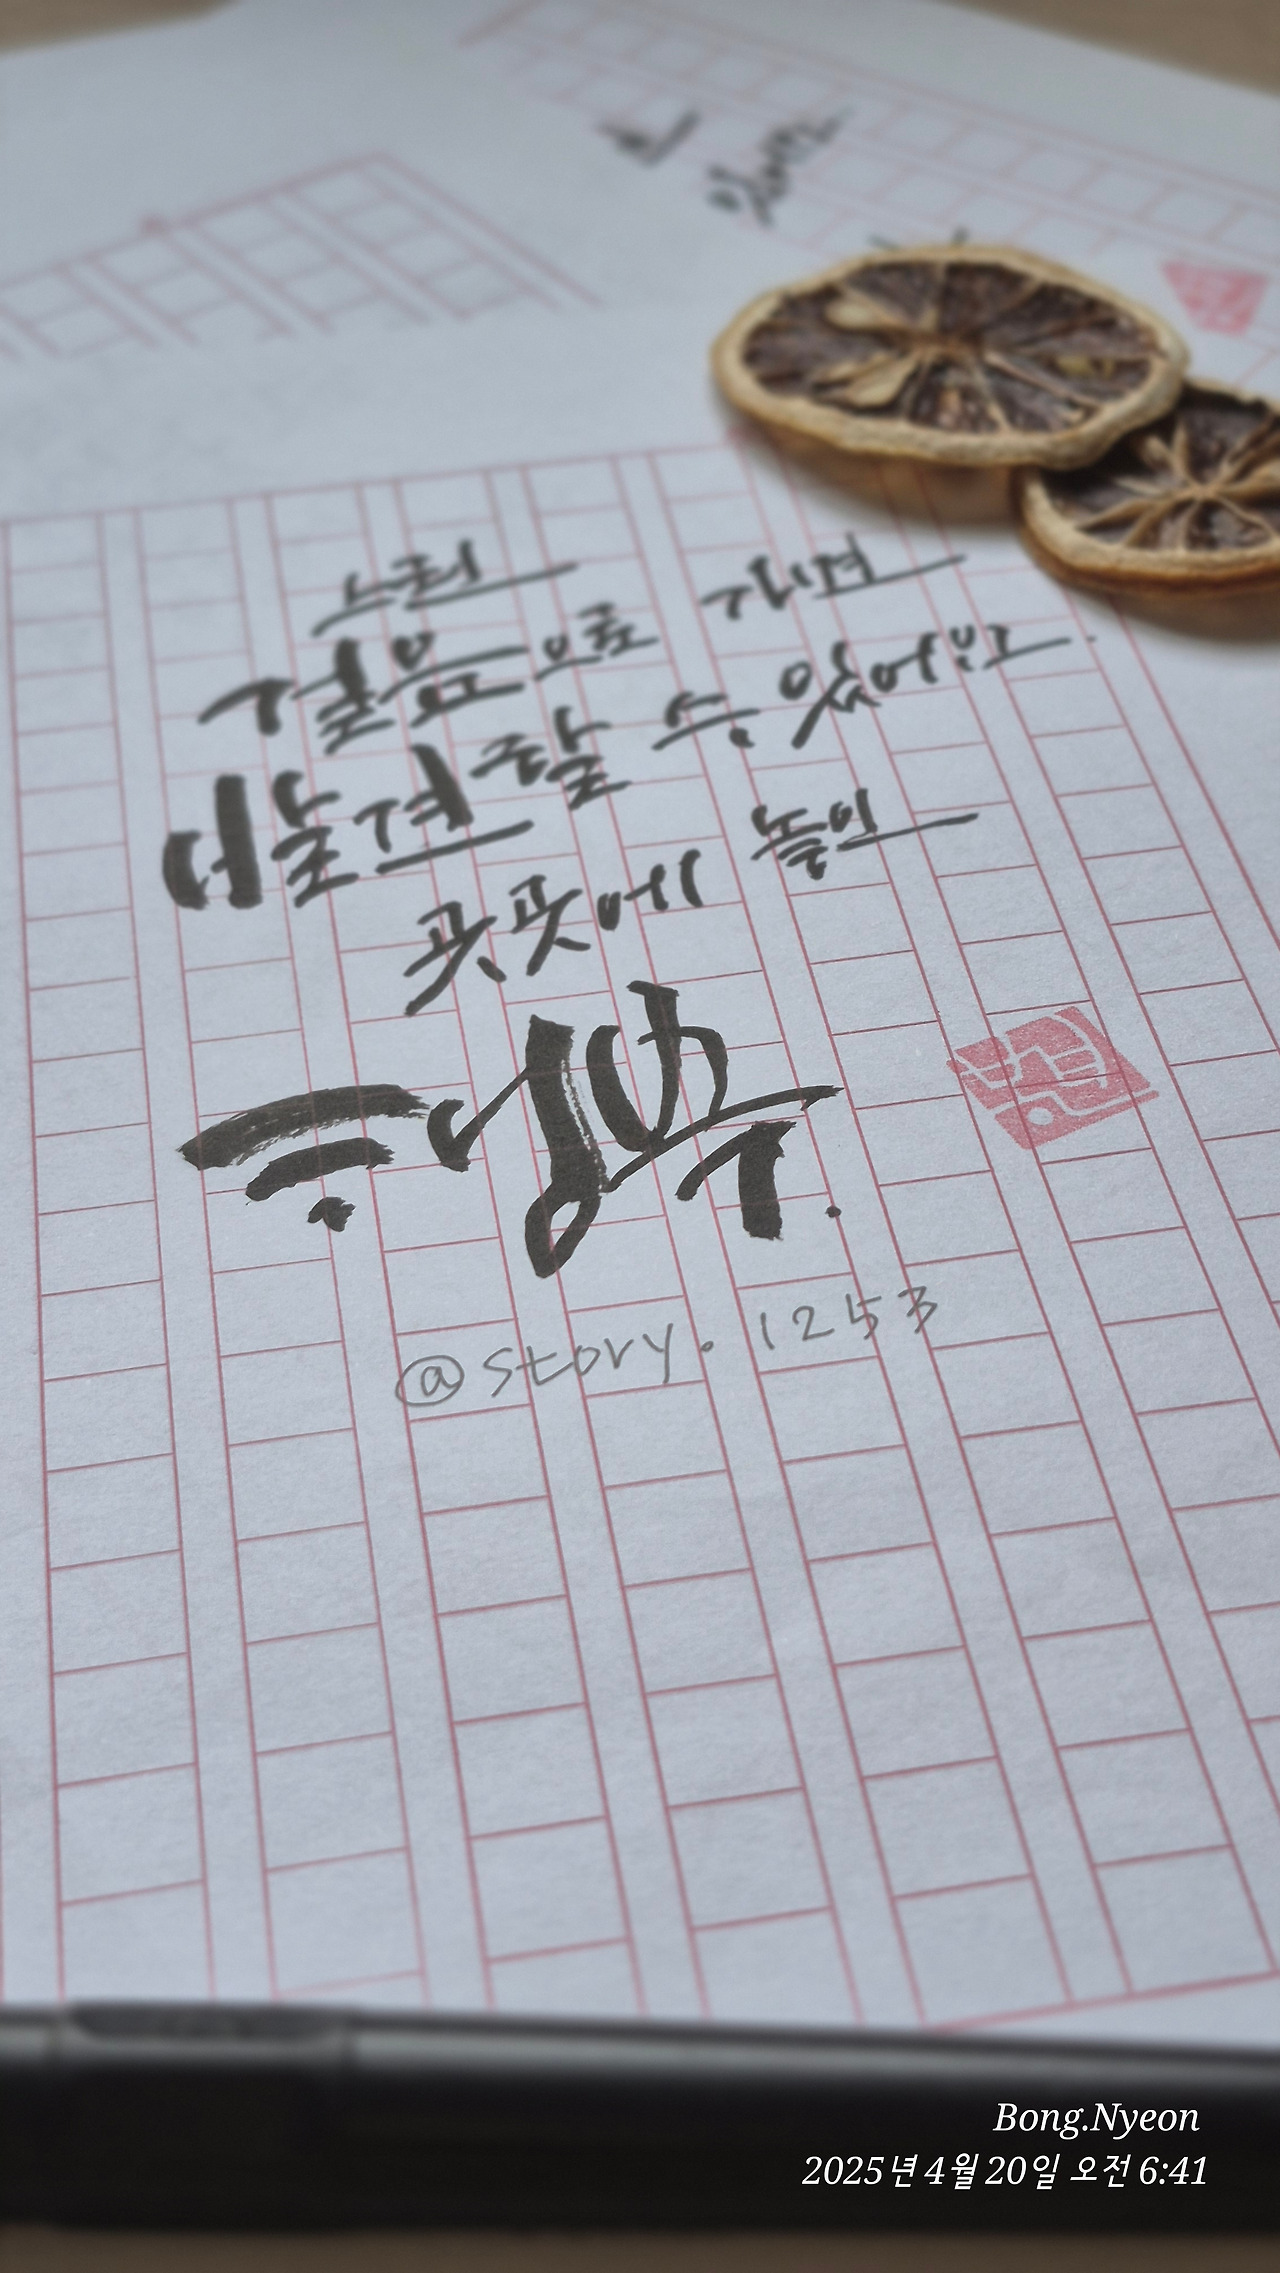 느린
걸음으로 가면
발견할 수 있어요.
곳곳에 놓인
행복.
@story.1253
Bong.Nyeon
2025년 4월 20일 오전 6:41